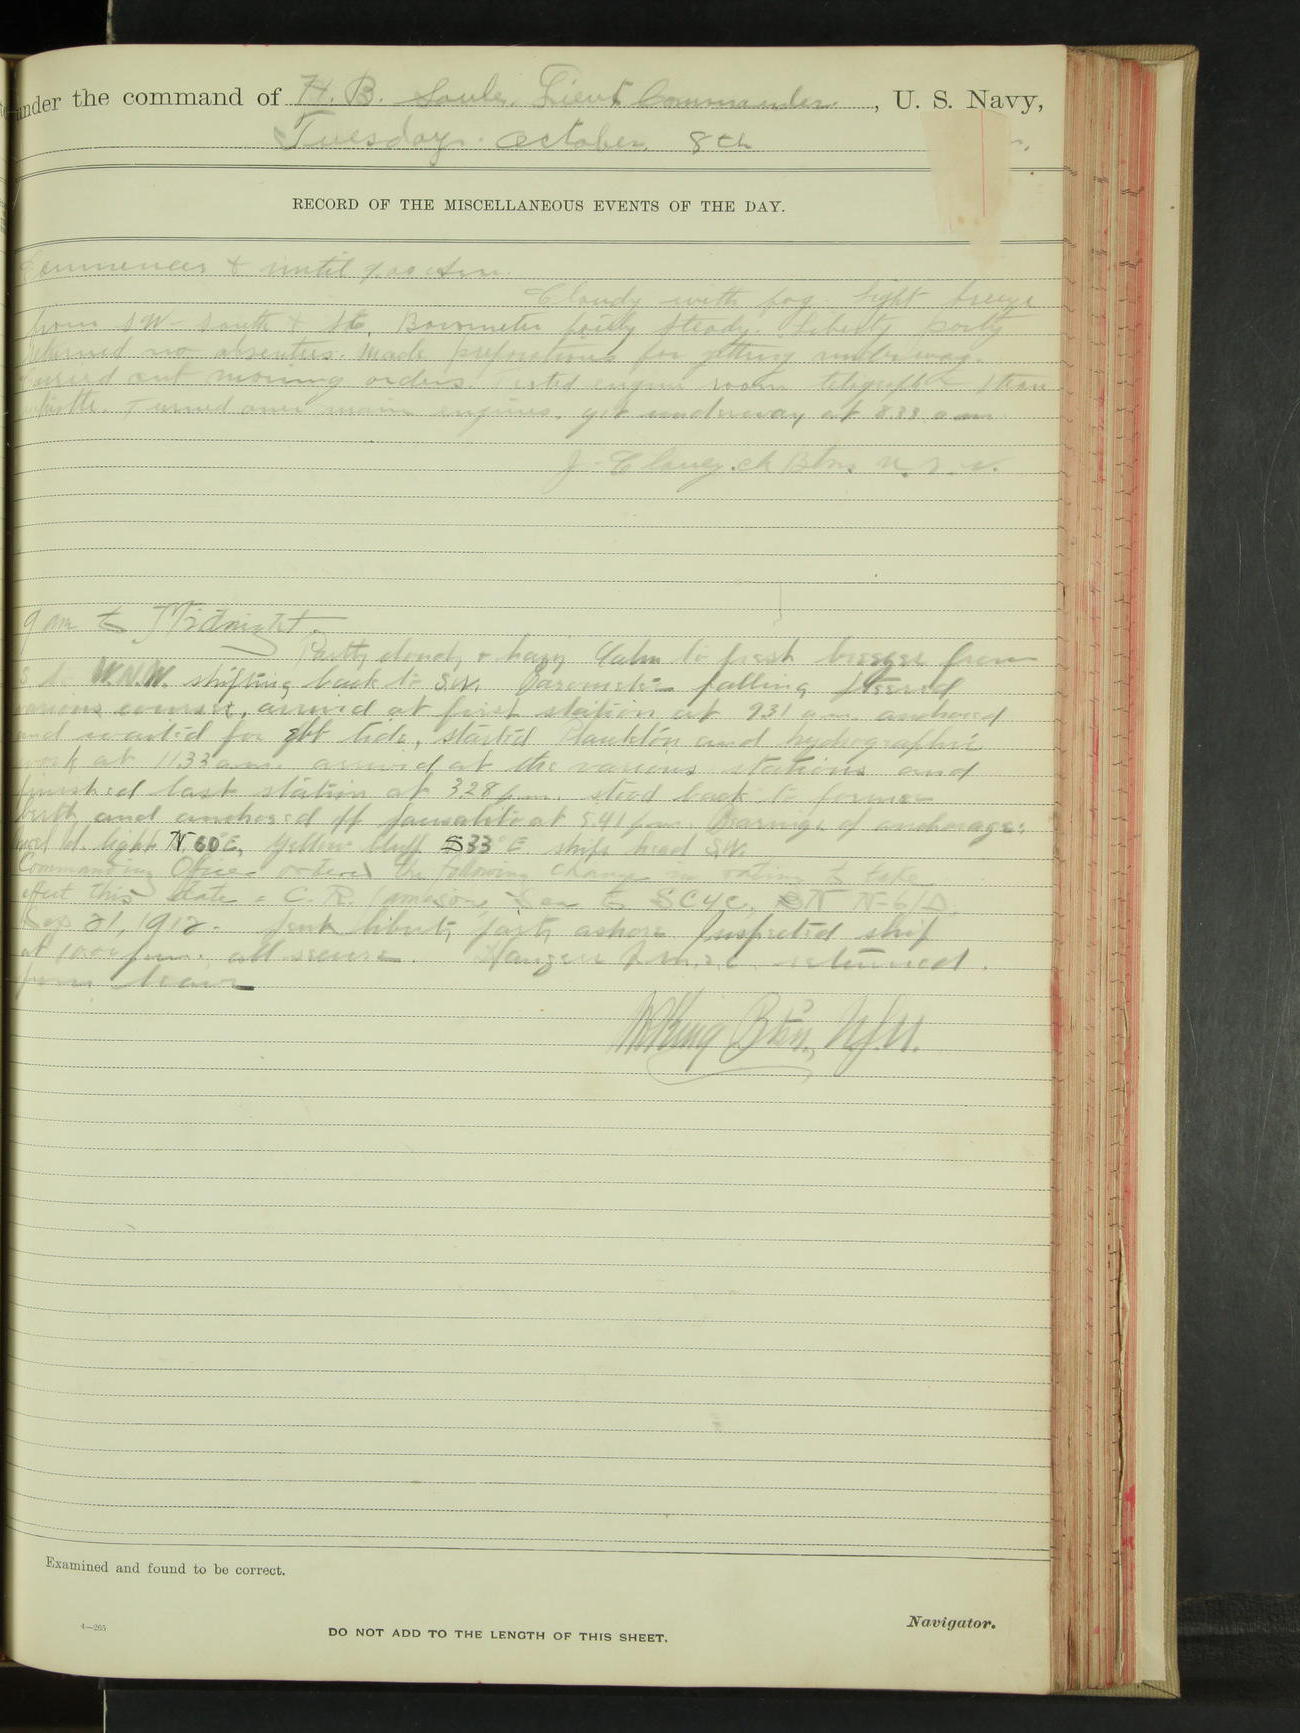 under the command of H. B. Soule, Lieut Commander, U. S. Navy,
Tuesday. October 8th
RECORD OF THE MISCELLANEOUS EVENTS OF THE DAY.
Commences & until
Cloudy with fog. Light breeze
from SW- South & Barometer fairly steady. Liberty party
returned no absentees. Made preparations for getting underway.
Carried out morning orders. Tested engine room telegraph & steam
whistle. Turned over main engines, got underway at 833 a m
J. Btsn. U. S. N.
9 am to Midnight.
Partly cloudy & hazy Calm to fresh breeze from
S to W.N.W. shifting back to S.W. Barometer falling Steered
various courses, arrived at first station at 931 a m. anchored
and waited for ebb tide, started Plankton and hydrographic
work at 1133 a.m. arrived at the various stations and
finished last station at 328 p.m. stood back to former
berth and anchored off Sausalito at 5.41 p.m. Bearings of anchorage:
light N 60°E, Yellow bluff S33°E ships head S.W.
Commanding Officer ordered the following change in rating to take
effect this date = C. R. Sea to SC4C, BN N-6/D.
21, 1912. Sent liberty party ashore. Inspected ship
at 1000 p.m. all secure. returned
from leave
King Btsn., U.S.N.
Examined and found to be correct.
4—265
DO NOT ADD TO THE LENGTH OF THIS SHEET.
Navigator.